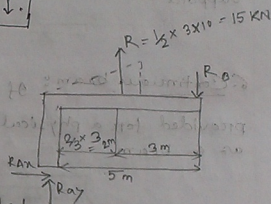 R = 1/2 × 3 × 10 = 15 KN
R_B
2/3 × 3
= 2m
3m
5m
RAx
RAy